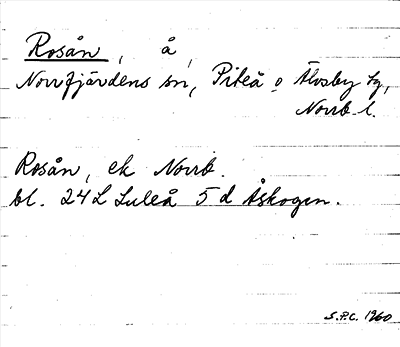 Rosån, å,
Norrfjärdens sn, Piteå o Älvsby tg,
Norrb. l.
Rosån, ek Norrb.
bl. 24 L Luleå 5 d Åskogen.
S.P.C. 1960